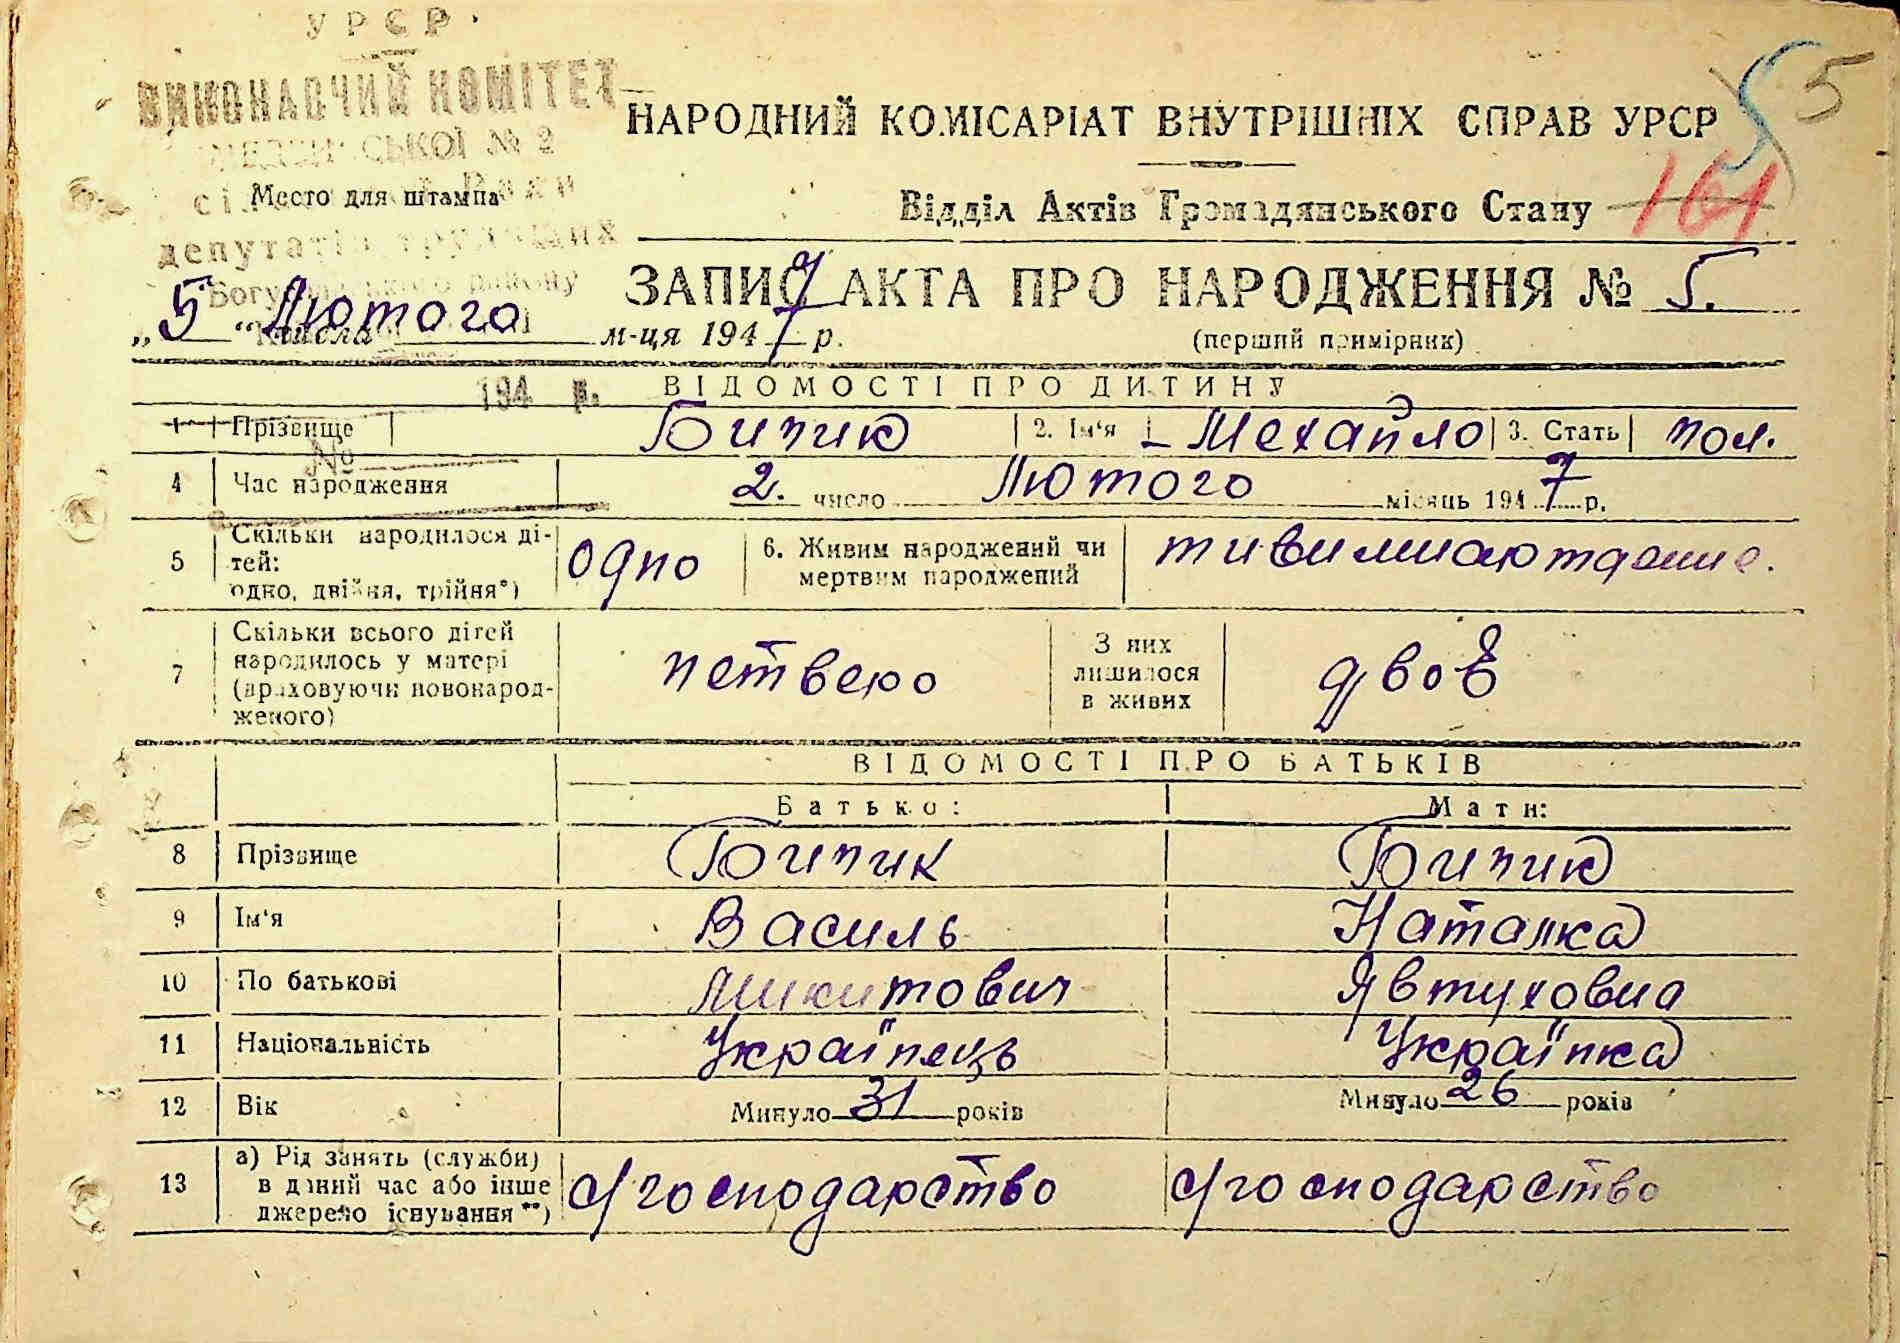 УРСР
ВИКОНАВЧИЙ КОМІТЕТ
СЬКОЇ № 2
Место для штампа
депутатів трудящих
194 р.
№
НАРОДНИЙ КОМІСАРІАТ ВНУТРІШНІХ СПРАВ УРСР
5
5
Відділ Актів Громадянського Стану 161
ЗАПИС АКТА ПРО НАРОДЖЕННЯ № 5.
„5“ числа Лютого м-ця 1947 р.
(перший примірник)
ВІДОМОСТІ ПРО ДИТИНУ
1 Прізвище Бипик 2. Ім'я - Мехайло 3. Стать пол.
4 Час народження 2. число Лютого місяць 1947 р.
5 Скільки народилося ді-
тей:
одно, двійня, трійня*) одно 6. Живим народжений чи
мертвим народжений
7 Скільки всього дітей
народилось у матері
(враховуючи новонарод-
женого) четверо З них
лишилося
в живих двоє
ВІДОМОСТІ ПРО БАТЬКІВ
Батько: Мати:
8 Прізвище Бипик Бипик
9 Ім'я Василь Наталка
10 По батькові Микитович Явтуховна
11 Національність Українець Українка
12 Вік Минуло 31 років Минуло 26 років
13 а) Рід занять (служби)
в даний час або інше
джерело існування**) с/господарство с/господарство